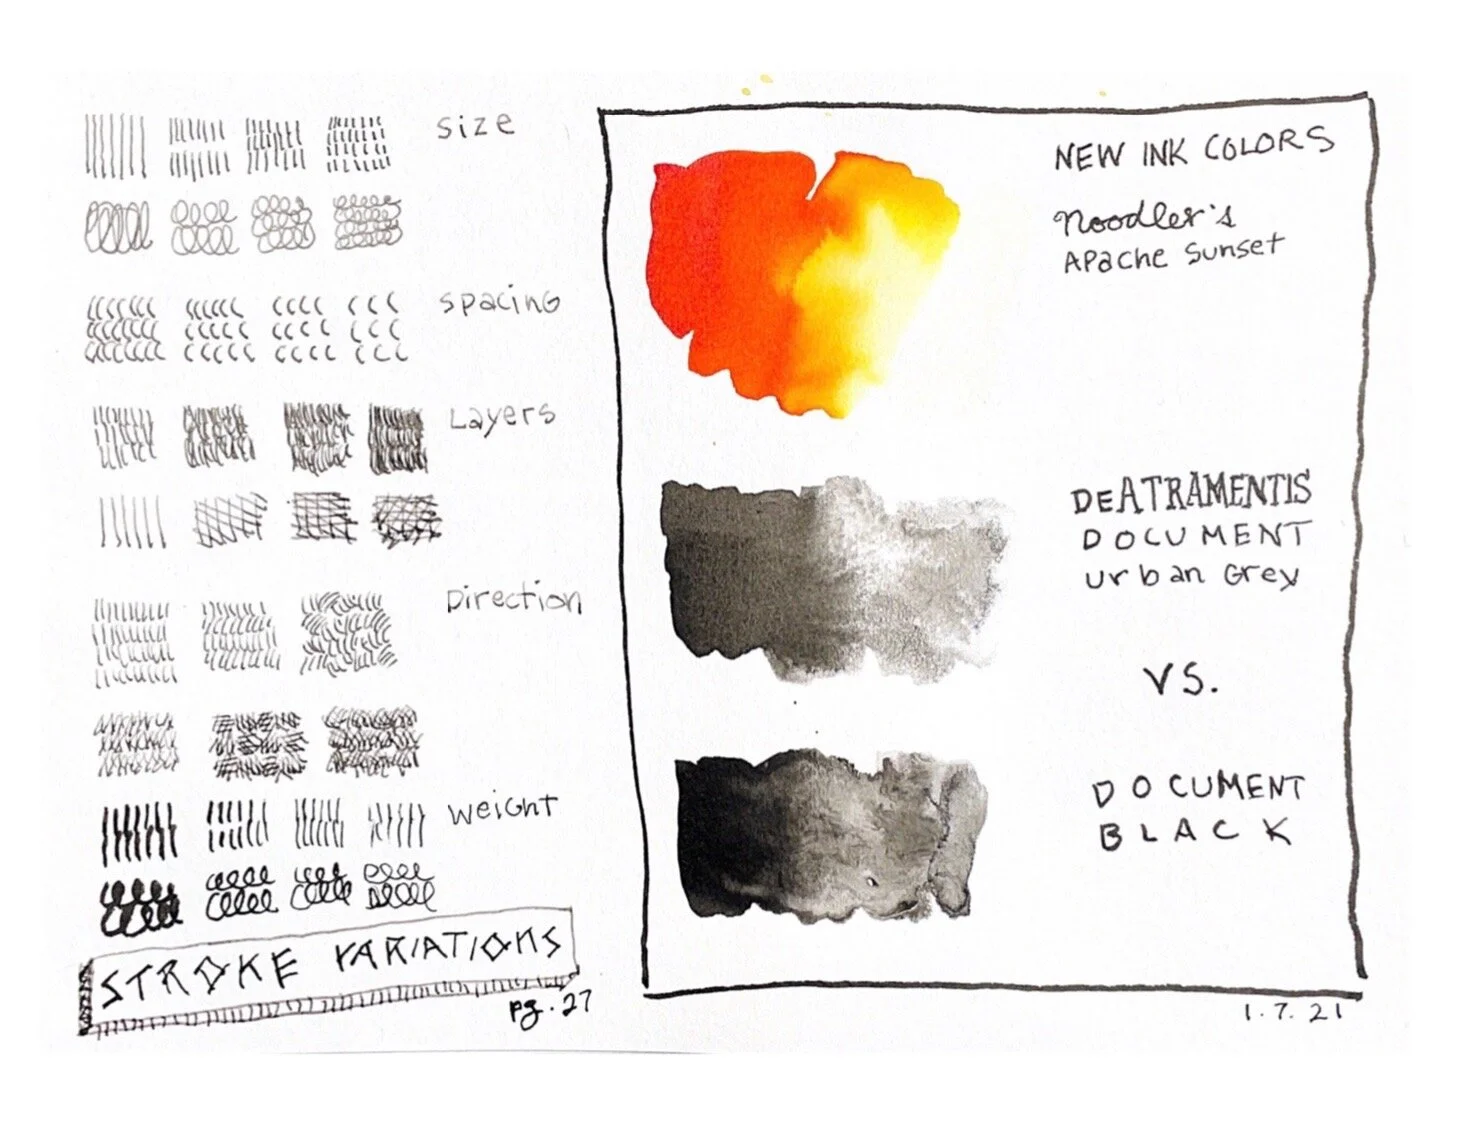 size
spacing
Layers
Direction
weight
STROKE VARIATIONS
pg. 27
NEW INK COLORS
Noodler's
Apache Sunset
DEATRAMENTIS
DOCUMENT
urban Grey
VS.
DOCUMENT
BLACK
1.7.21